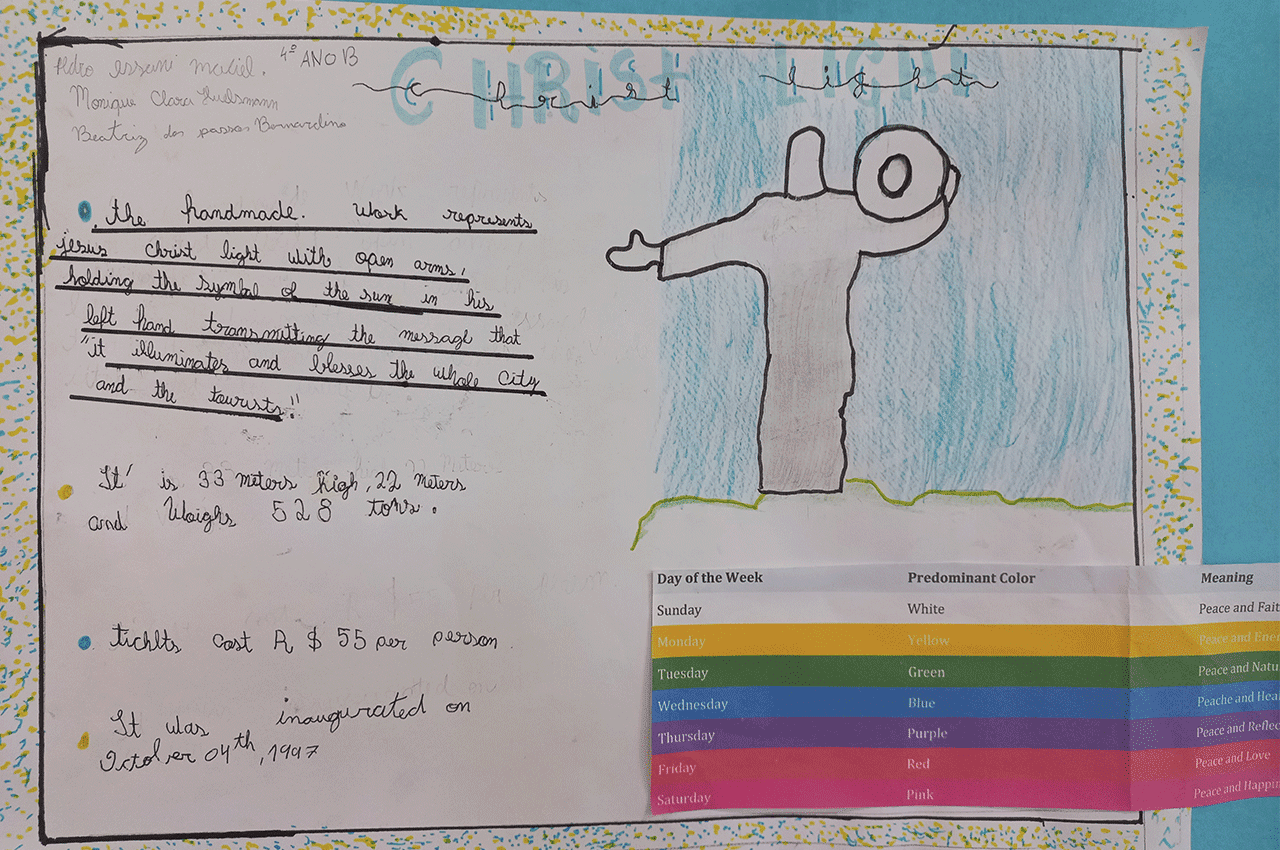 Pedro Issani Maciel. 4º ANO B
Monique Clara
Beatriz dos passos Bernardino
CHRIST LIGHT
christ light
.the handmade. Work represents
jesus christ light with open arms,
holding the symbol of the sun in his
left hand transmitting the message that
"it illuminates and blesses the whole city
and the tourists!"
It' is 33 meters high, 22 meters
and Weighs 528 tons.
tickets cost R $ 55 per person.
It was inaugurated on
October 04th, 1997
Day of the Week Predominant Color Meaning
Sunday White Peace and Fait
Monday Yellow Peace and Ener
Tuesday Green Peace and Natu
Wednesday Blue Peache and Hea
Thursday Purple Peace and Reflec
Friday Red Peace and Love
Saturday Pink Peace and Happin